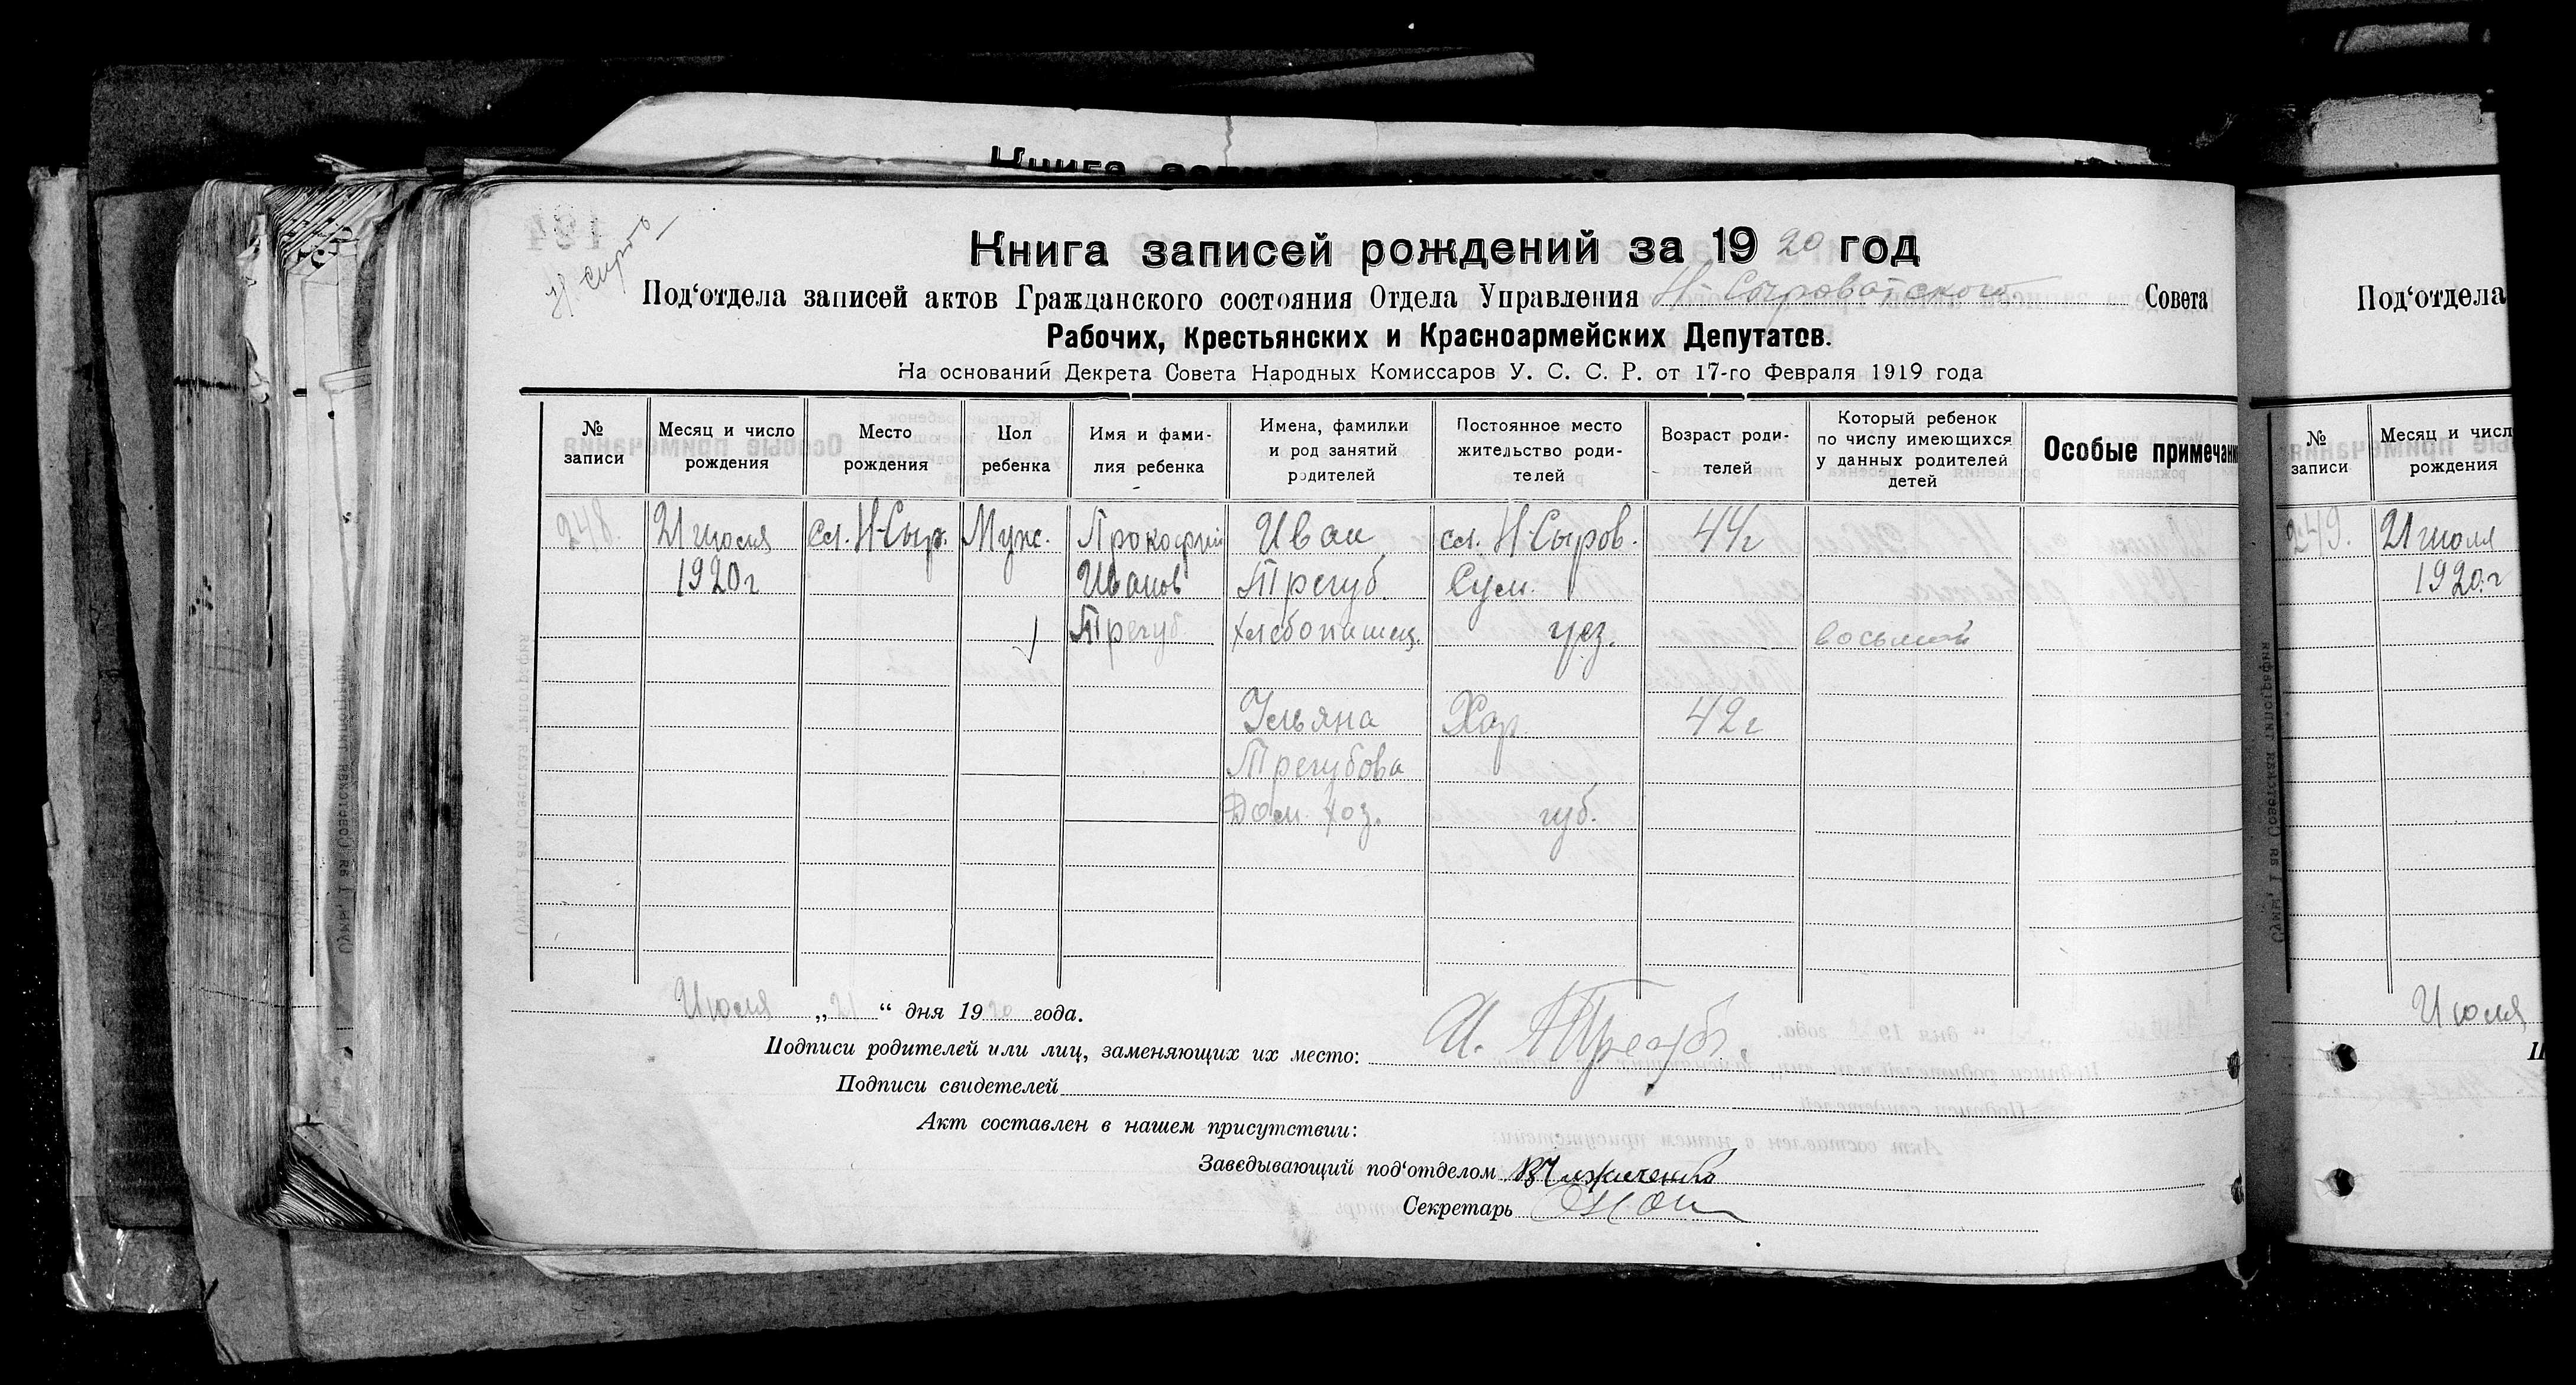 Книга запис
Н. сыров
Книга записей рождений за 19 20 год
Под‘отдела записей актов Гражданского состояния Отдела Управления Н-Сыроватского Совета
Рабочих, Крестьянских и Красноармейских Депутатов.
На оснований Декрета Совета Народных Комиссаров У. С. С. Р. от 17-го Февраля 1919 года
№ записи
Месяц и число рождения
Место рождения
Пол ребенка
Имя и фами-
лия ребенка
Имена, фамилии
и род занятий
родителей
Постоянное место
жительство роди-
телей
Возраст роди-
телей
Который ребенок
по числу имеющихся
у данных родителей
детей
Особые примечани
248. 21 июля сл. Н-Сыр. Муж. Прокофий Иван сл. Н-Сыров. 44г
1920г Иванов Трегуб. Сум.
Трегуб хлебопашец. уез. восьмой
Ульяна Хар. 42г
Трегубова
Дом. хоз. губ.
Июля „ 21 “ дня 19 20 года.
Подписи родителей или лиц, заменяющих их место: И. Трегуб.
Подписи свидетелей
Акт составлен в нашем присутствии:
Заведывающий под‘отделом
Секретарь
Под‘отдела
№ записи
Месяц и числ
рождения
249. 21 июля
1920.г
Июля